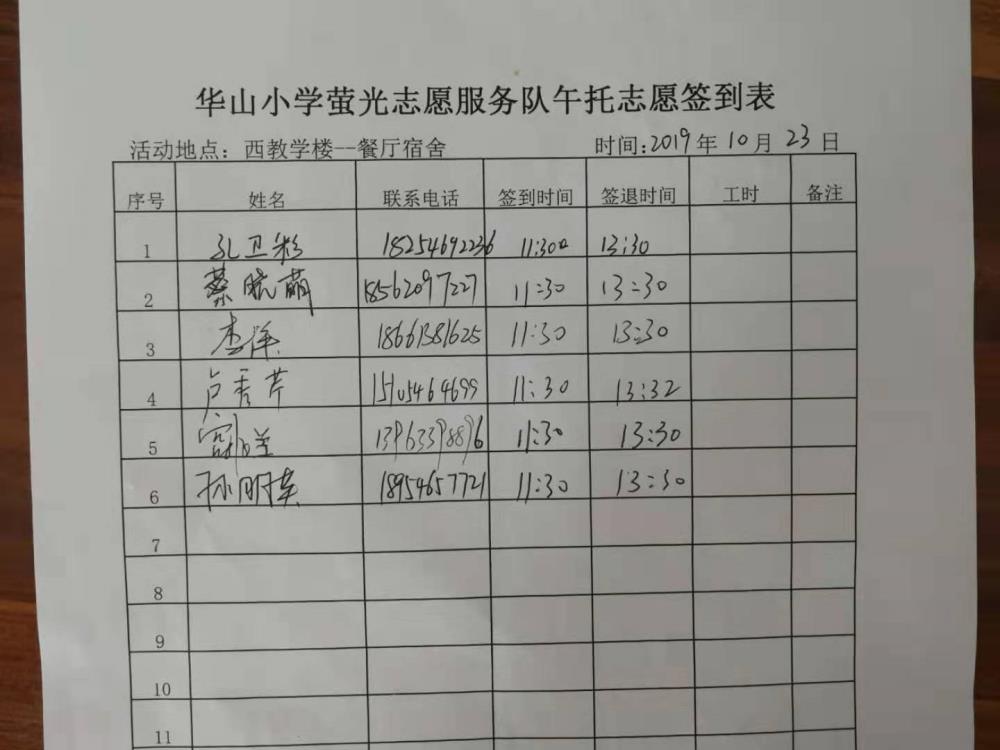 华山小学萤光志愿服务队午托志愿签到表
活动地点：西教学楼--餐厅宿舍 时间:2019年10月23日
序号 姓名 联系电话 签到时间 签退时间 工时 备注
1 孔卫彩 18254692236 11:30 13:30
2 蔡晓萌 18562097227 11:30 13:30
3 18661381625 11:30 13:30
4 卢秀芹 15105464699 11:30 13:32
5 13963398896 11:30 13:30
6 孙明英 18954657721 11:30 13:30
7
8
9
10
11